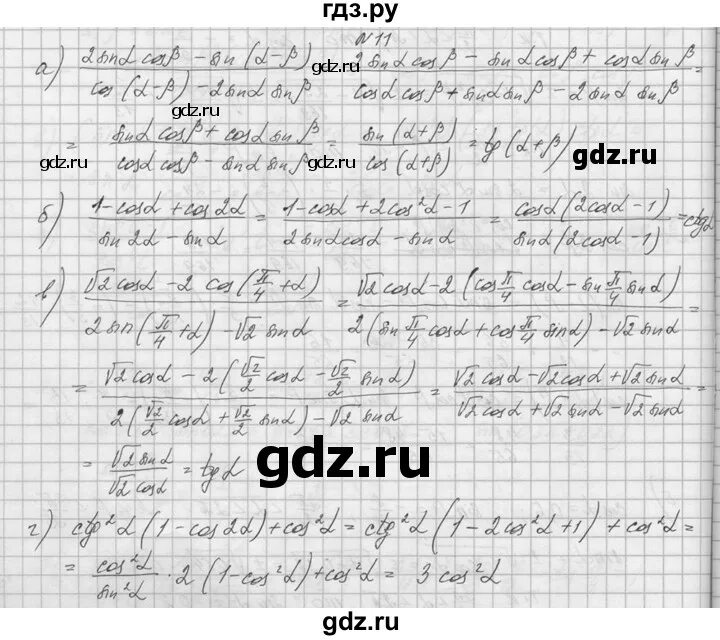 гдз.ру
N 11
а) (2sinα cosβ - sin(α-β)) / (cos(α-β) - 2sinα sinβ) = (2sinα cosβ - sinα cosβ + cosα sinβ) / (cosα cosβ + sinα sinβ - 2sinα sinβ) =
= (sinα cosβ + cosα sinβ) / (cosα cosβ - sinα sinβ) = sin(α+β) / cos(α+β) = tg(α+β)
б) (1-cosα + cos2α) / (sin2α - sinα) = (1-cosα + 2cos²α - 1) / (2sinα cosα - sinα) = cosα(2cosα - 1) / sinα(2cosα - 1) = ctgα
в) (√2 cosα - 2 cos(π/4 + α)) / (2 sin(π/4 + α) - √2 sinα) = (√2 cosα - 2(cos π/4 cosα - sin π/4 sinα)) / (2(sin π/4 cosα + cos π/4 sinα) - √2 sinα) =
= (√2 cosα - 2(√2/2 cosα - √2/2 sinα)) / (2(√2/2 cosα + √2/2 sinα) - √2 sinα) = (√2 cosα - √2 cosα + √2 sinα) / (√2 cosα + √2 sinα - √2 sinα) =
= √2 sinα / √2 cosα = tgα
г) ctg²α (1 - cos2α) + cos²α = ctg²α (1 - 2cos²α + 1) + cos²α =
= cos²α / sin²α · 2 (1 - cos²α) + cos²α = 3 cos²α
gdz.ru
gdz.ru
gdz.ru
gdz.ru
gdz.ru
gdz.ru
gdz.ru
gdz.ru
gdz.ru
gdz.ru